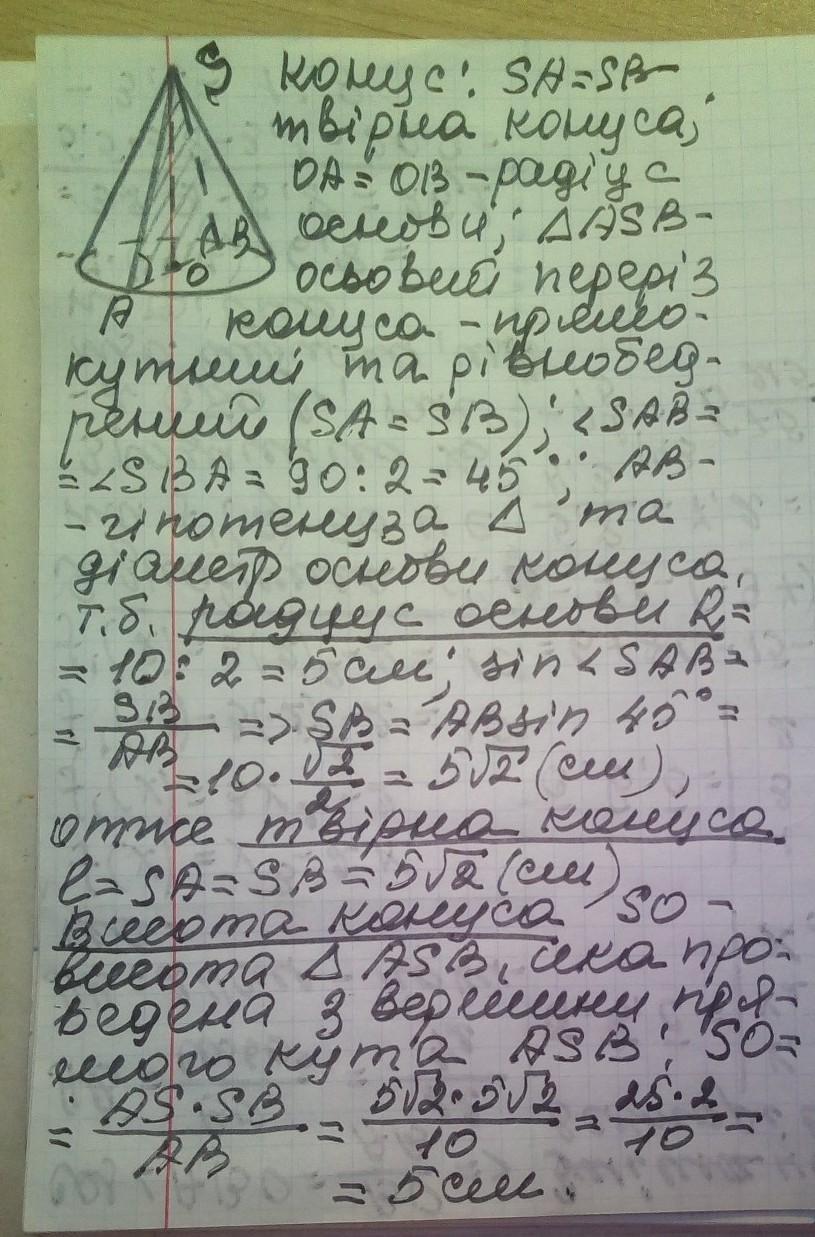 S конус: SA=SB-
твірна конуса;
OA=OB-радіус
AB основи; ΔASB-
O осьовий переріз
A конуса -прямо-
кутний та рівнобед-
рений (SA=SB); <SAB=
=<SBA=90:2=45°; AB-
-гіпотенуза Δ та
діаметр основи конуса,
т.б. радиус основи R=
=10:2=5см; sin<SAB=
=SB/AB => SB=ABsin 45°=
=10·√2/2=5√2(см),
отже твірна конуса
l=SA=SB=5√2(см)
Висота конуса SO-
висота ΔASB, яка про-
ведена з вершини пря-
мого кута ASB; SO=
=AS·SB/AB=5√2·5√2/10=25·2/10=
=5см.